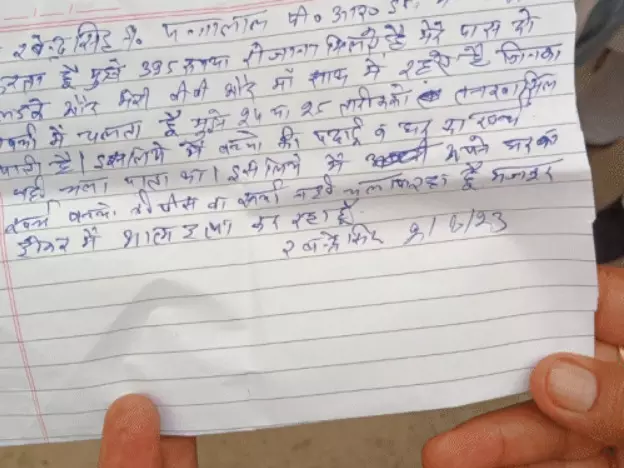 रवेन्द्र सिंह s/o पन्नालाल पी० आर० डी०
करता है मुझे 395 रूपया रोजाना मिलते है मेरे पास दो
लडके और मेरी बीबी और माँ साथ में रहते है जिनका
खर्चा में चलता है मुझे 24 या 25 तारीखको तनख्वा मिल
पाती है। इसलिये में बच्चो की पढाई व घर का खर्चा
नही चला पाता था। इसलिये में अपने घर का
खर्च बच्चो की फीस का खर्चा नही चल रहा है मजबूर
होकर में आत्म हत्या कर रहा है
रवेन्द्र सिंह 9/6/23